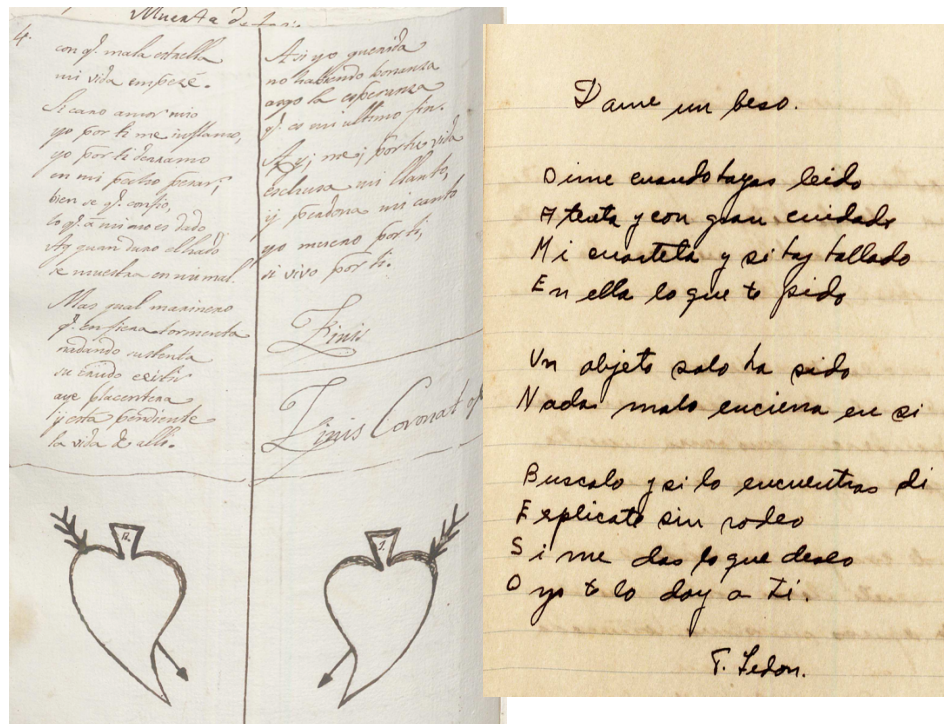 Muerta de
4.
con q.e mala estrella
mi vida empezé.
Si caro amor mio
yo por ti me inflamo,
yo por ti derramo
en mi pecho penar;
bien se q.e confio,
lo q.e a mi no es dado
Ay quan duro el hado
se muestra en mi mal.
Mas qual marinero
q.e en fiera tormenta
nadando sustenta
su
aye placentera
y esta pendiente
la vida de ello.
Asi yo querida
no habiendo bonanza
la esperanza
q.e es mi ultimo fin.
Ay, me; por tu vida
Escucha mi llanto,
y perdona mi canto
yo muero por ti,
si vivo por ti.
Finis
Finis Coronat op
R.
J.
Dame un beso.
Dime cuando hayas leido
Atenta y con gran cuidado
Mi cuarteta y si hay hallado
En ella lo que te pido
Un objeto solo ha sido
Nada malo encierra en si
Buscalo y si lo encuentras di
Explicate sin rodeo
Si me das lo que deseo
O yo te lo doy a ti.
T. Ledon.